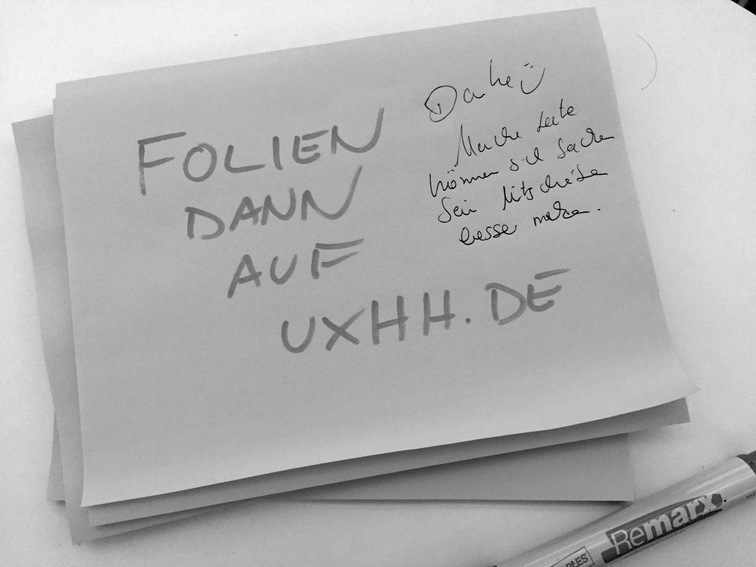 FOLIEN
DANN
AUF
UXHH.DE
Danke
Manche Leute
können sich Sachen
beim Mitschreiben
besser merken.
Remarx